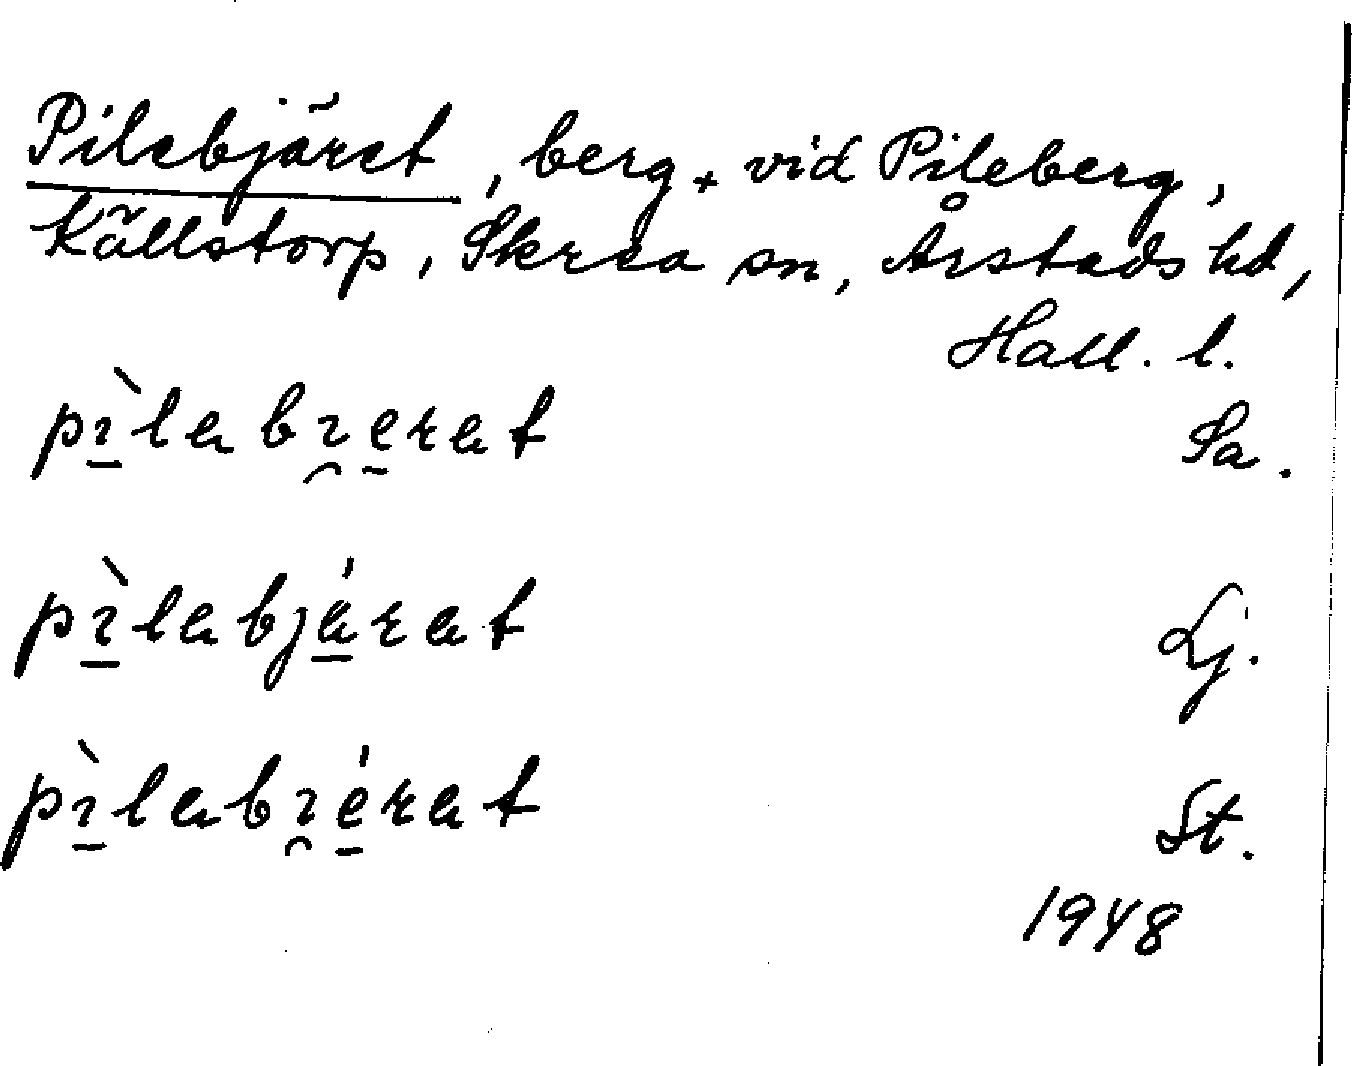 Pilebjäret, berg + vid Pileberg,
Källstorp, Skrea sn, Årstads hd,
Hall. l.
pìlabɪ̯erat Sa.
pìlabjárat Lj.
pìlabɪ̯érat St.
1948